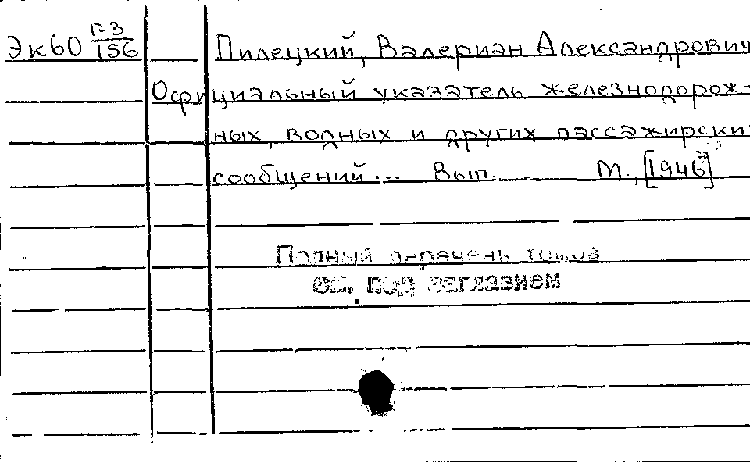 Эк60 Г-3/156 Пилецкий, Валериан Александрович
Официальный указатель железнодорож-
ных, водных и других пассажирских
сообщений... Вып. М., [1946]
Полный перечень томов
см. под заглавием